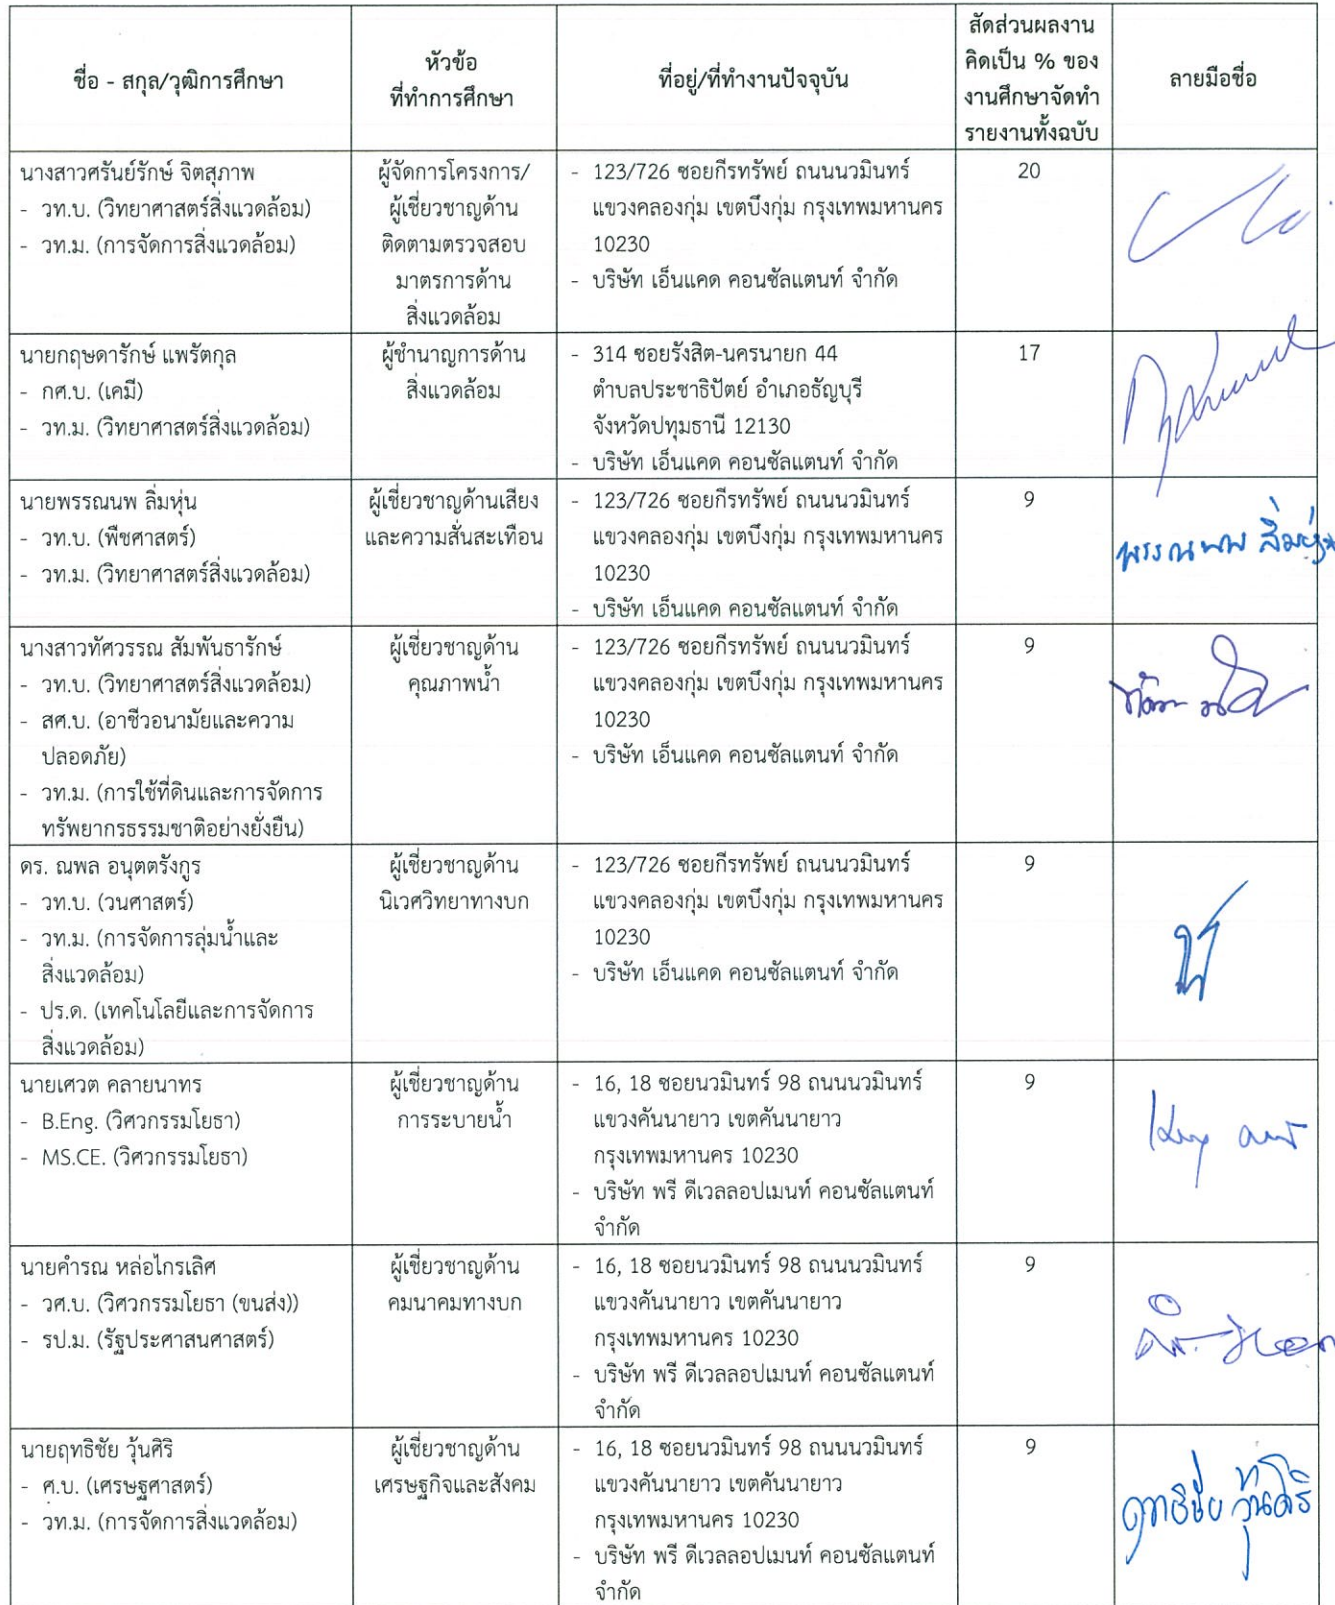 ชื่อ - สกุล/วุฒิการศึกษา
หัวข้อ
ที่ทำการศึกษา
ที่อยู่/ที่ทำงานปัจจุบัน
สัดส่วนผลงาน
คิดเป็น % ของ
งานศึกษาจัดทำ
รายงานทั้งฉบับ
ลายมือชื่อ
นางสาวศรันย์รักษ์ จิตสุภาพ
- วท.บ. (วิทยาศาสตร์สิ่งแวดล้อม)
- วท.ม. (การจัดการสิ่งแวดล้อม)
ผู้จัดการโครงการ/
ผู้เชี่ยวชาญด้าน
ติดตามตรวจสอบ
มาตรการด้าน
สิ่งแวดล้อม
- 123/726 ซอยกีรทรัพย์ ถนนนวมินทร์
แขวงคลองกุ่ม เขตบึงกุ่ม กรุงเทพมหานคร
10230
- บริษัท เอ็นแคด คอนซัลแตนท์ จำกัด
20
นายกฤษดารักษ์ แพรัตกุล
- กศ.บ. (เคมี)
- วท.ม. (วิทยาศาสตร์สิ่งแวดล้อม)
ผู้ชำนาญการด้าน
สิ่งแวดล้อม
- 314 ซอยรังสิต-นครนายก 44
ตำบลประชาธิปัตย์ อำเภอธัญบุรี
จังหวัดปทุมธานี 12130
- บริษัท เอ็นแคด คอนซัลแตนท์ จำกัด
17
นายพรรณนพ ลิ่มหุ่น
- วท.บ. (พืชศาสตร์)
- วท.ม. (วิทยาศาสตร์สิ่งแวดล้อม)
ผู้เชี่ยวชาญด้านเสียง
และความสั่นสะเทือน
- 123/726 ซอยกีรทรัพย์ ถนนนวมินทร์
แขวงคลองกุ่ม เขตบึงกุ่ม กรุงเทพมหานคร
10230
- บริษัท เอ็นแคด คอนซัลแตนท์ จำกัด
9
พรรณนพ ลิ่มหุ่น
นางสาวทัศวรรณ สัมพันธารักษ์
- วท.บ. (วิทยาศาสตร์สิ่งแวดล้อม)
- สศ.บ. (อาชีวอนามัยและความ
ปลอดภัย)
- วท.ม. (การใช้ที่ดินและการจัดการ
ทรัพยากรธรรมชาติอย่างยั่งยืน)
ผู้เชี่ยวชาญด้าน
คุณภาพน้ำ
- 123/726 ซอยกีรทรัพย์ ถนนนวมินทร์
แขวงคลองกุ่ม เขตบึงกุ่ม กรุงเทพมหานคร
10230
- บริษัท เอ็นแคด คอนซัลแตนท์ จำกัด
9
ดร. ณพล อนุตตรังกูร
- วท.บ. (วนศาสตร์)
- วท.ม. (การจัดการลุ่มน้ำและ
สิ่งแวดล้อม)
- ปร.ด. (เทคโนโลยีและการจัดการ
สิ่งแวดล้อม)
ผู้เชี่ยวชาญด้าน
นิเวศวิทยาทางบก
- 123/726 ซอยกีรทรัพย์ ถนนนวมินทร์
แขวงคลองกุ่ม เขตบึงกุ่ม กรุงเทพมหานคร
10230
- บริษัท เอ็นแคด คอนซัลแตนท์ จำกัด
9
นายเศวต คลายนาทร
- B.Eng. (วิศวกรรมโยธา)
- MS.CE. (วิศวกรรมโยธา)
ผู้เชี่ยวชาญด้าน
การระบายน้ำ
- 16, 18 ซอยนวมินทร์ 98 ถนนนวมินทร์
แขวงคันนายาว เขตคันนายาว
กรุงเทพมหานคร 10230
- บริษัท พรี ดีเวลลอปเมนท์ คอนซัลแตนท์
จำกัด
9
นายคำรณ หล่อไกรเลิศ
- วศ.บ. (วิศวกรรมโยธา (ขนส่ง))
- รป.ม. (รัฐประศาสนศาสตร์)
ผู้เชี่ยวชาญด้าน
คมนาคมทางบก
- 16, 18 ซอยนวมินทร์ 98 ถนนนวมินทร์
แขวงคันนายาว เขตคันนายาว
กรุงเทพมหานคร 10230
- บริษัท พรี ดีเวลลอปเมนท์ คอนซัลแตนท์
จำกัด
9
นายฤทธิชัย วุ้นศิริ
- ศ.บ. (เศรษฐศาสตร์)
- วท.ม. (การจัดการสิ่งแวดล้อม)
ผู้เชี่ยวชาญด้าน
เศรษฐกิจและสังคม
- 16, 18 ซอยนวมินทร์ 98 ถนนนวมินทร์
แขวงคันนายาว เขตคันนายาว
กรุงเทพมหานคร 10230
- บริษัท พรี ดีเวลลอปเมนท์ คอนซัลแตนท์
จำกัด
9
ฤทธิชัย วุ้นศิริ